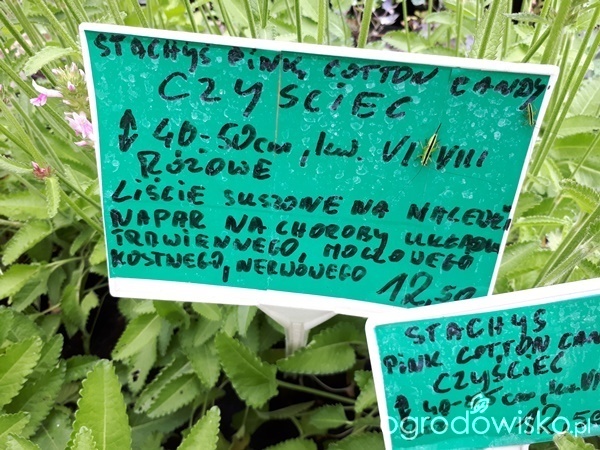 STACHYS PINK COTTON CANDY
CZYŚCIEC
↕ 40-50cm, kw. VI-VIII
RÓŻOWE
LIŚCIE SUSZONE NA NALEWKI
NAPAR NA CHOROBY UKŁADU
TRAWIENNEGO, MOCZOWEGO
KOSTNEGO, NERWOWEGO 12,50
STACHYS
PINK COTTON CAN
CZYŚCIEC
↕ 40- cm, kw. VI
12,50
ogrodowisko.pl